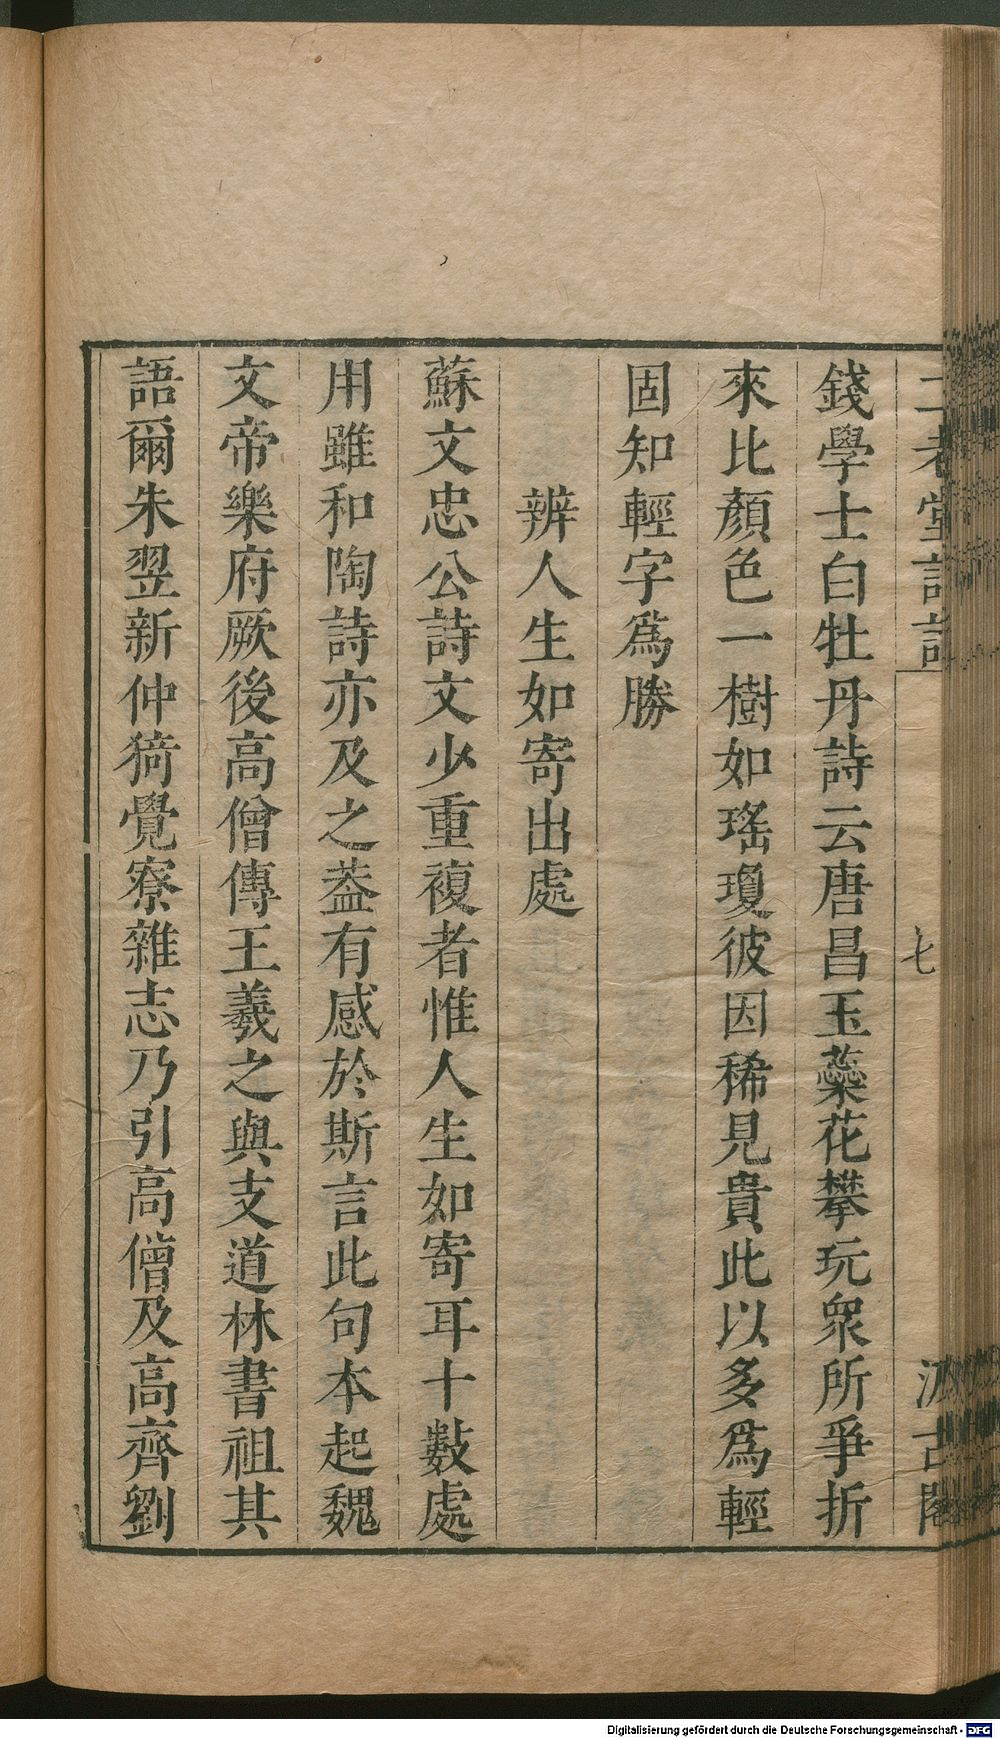 二老堂詩話
七
汲古閣
錢學士白牡丹詩云唐昌玉蘂花攀玩衆所爭折
來比顏色一樹如瑤瓊彼因稀見貴此以多爲輕
固知輕字爲勝
辨人生如寄出處
蘇文忠公詩文少重複者惟人生如寄耳十數處
用雖和陶詩亦及之葢有感於斯言此句本起魏
文帝樂府厥後高僧傳王羲之與支道林書祖其
語爾朱翌新仲猗覺寮雜志乃引高僧及高齊劉
Digitalisierung gefördert durch die Deutsche Forschungsgemeinschaft - DFG